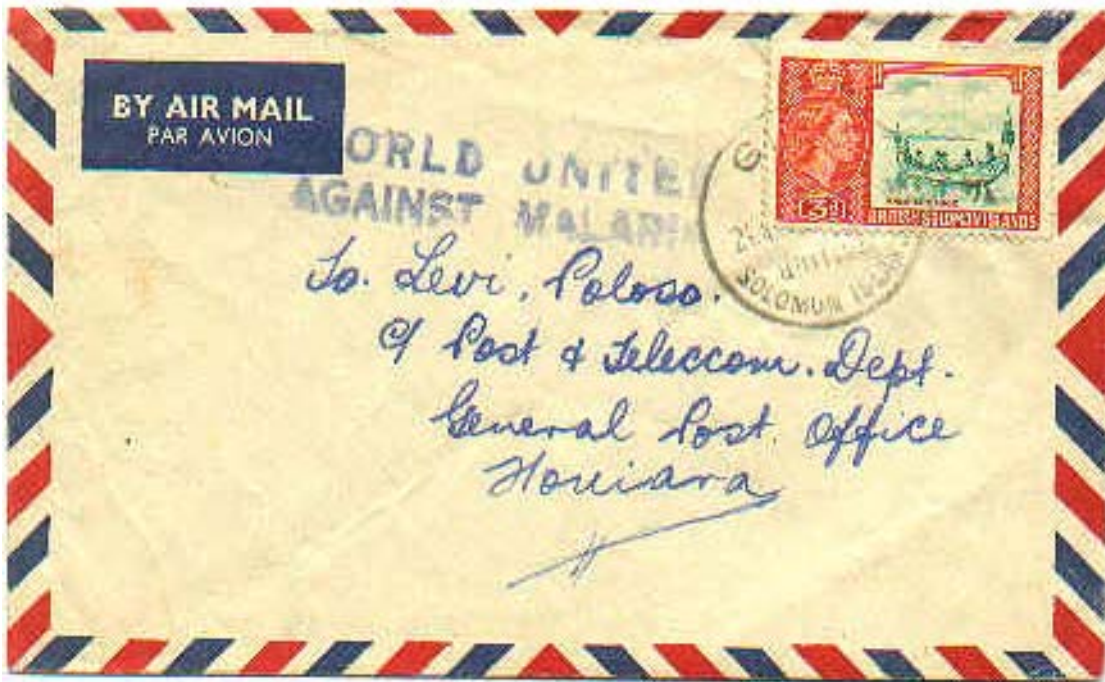 BY AIR MAIL
PAR AVION
ORLD UNITE
AGAINST MALARI
3d
BRITISH SOLOMON ISLANDS
SOLOMON
To. Levi, Poloso.
c/ Post & Teleccom. Dept.
General Post Office
Honiara